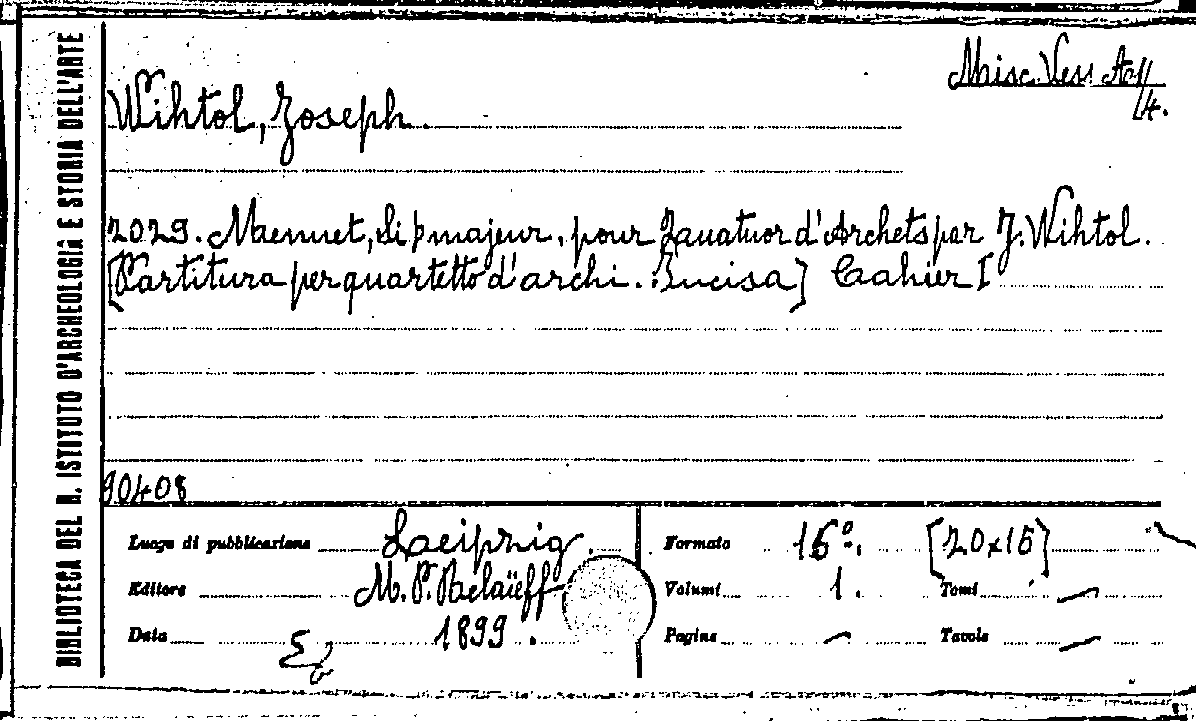 BIBLIOTECA DEL R. ISTITUTO D'ARCHEOLOGIA E STORIA DELL'ARTE
Misc. Vess. A
/4.
Wihtol, Joseph.
2029. Menuet, Si♭ majeur, pour Quatuor d'Archets par J. Wihtol.
[Partitura per quartetto d'archi. Incisa] Cahier I
90408
Luogo di pubblicazione Leipzig.
Editore M. P. Belaïeff
Data 1899.
Formato 16°. [20x16]
Volumi 1. Tomi —
Pagine — Tavole —